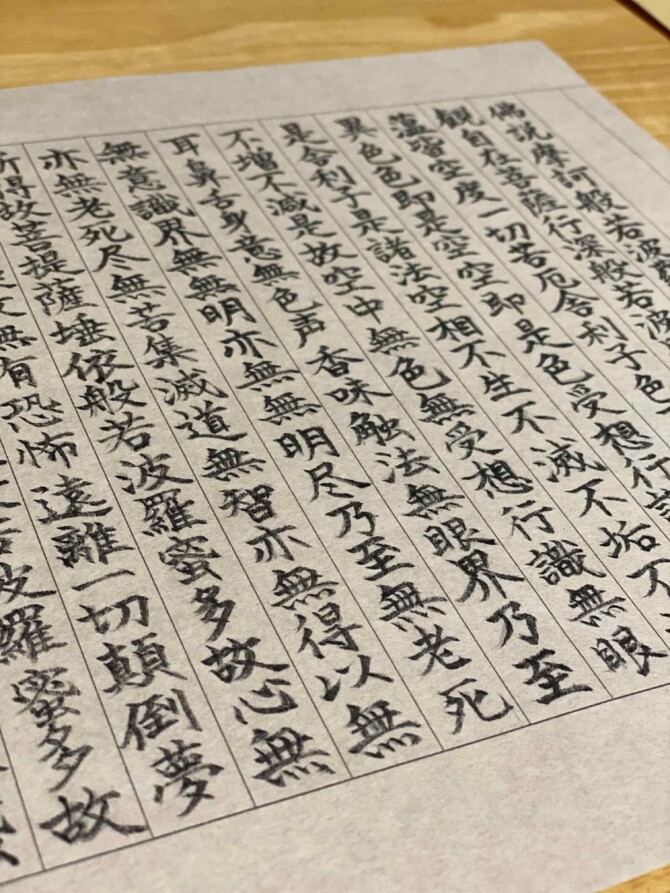 佛説摩訶般若波
観自在菩薩行深般若波
蘊皆空度一切苦厄舎利子色
異色色即是空空即是色受想行識
是舎利子是諸法空相不生不滅不垢不
不増不減是故空中無色無受想行識無眼
耳鼻舌身意無色声香味触法無眼界乃至
無意識界無無明亦無無明尽乃至無老死
亦無老死尽無苦集滅道無智亦無得以無
所得故菩提薩埵依般若波羅蜜多故心無
故無有恐怖遠離一切顛倒夢
波羅蜜多故